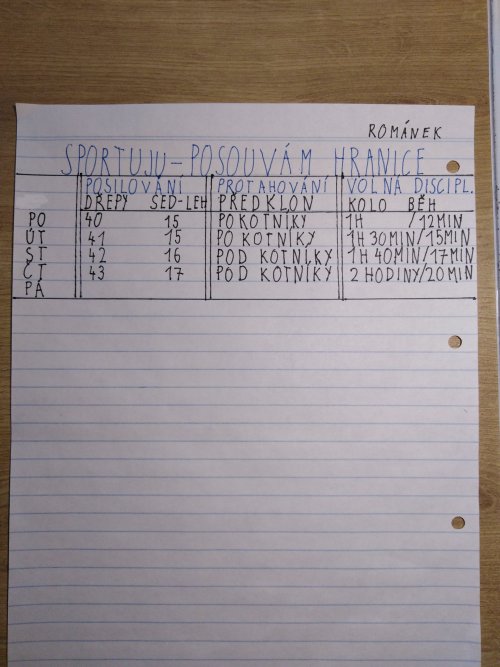 ROMÁNEK
SPORTUJU-POSOUVÁM HRANICE
POSILOVÁNÍ PROTAHOVÁNÍ VOLNÁ DISCIPL.
DŘEPY SED-LEH PŘEDKLON KOLO BĚH
PO 40 15 PO KOTNÍKY 1H /12MIN
ÚT 41 15 PO KOTNÍKY 1H 30MIN/15MIN
ST 42 16 POD KOTNÍKY 1H 40MIN/17MIN
ČT 43 17 POD KOTNÍKY 2 HODINY/20MIN
PÁ